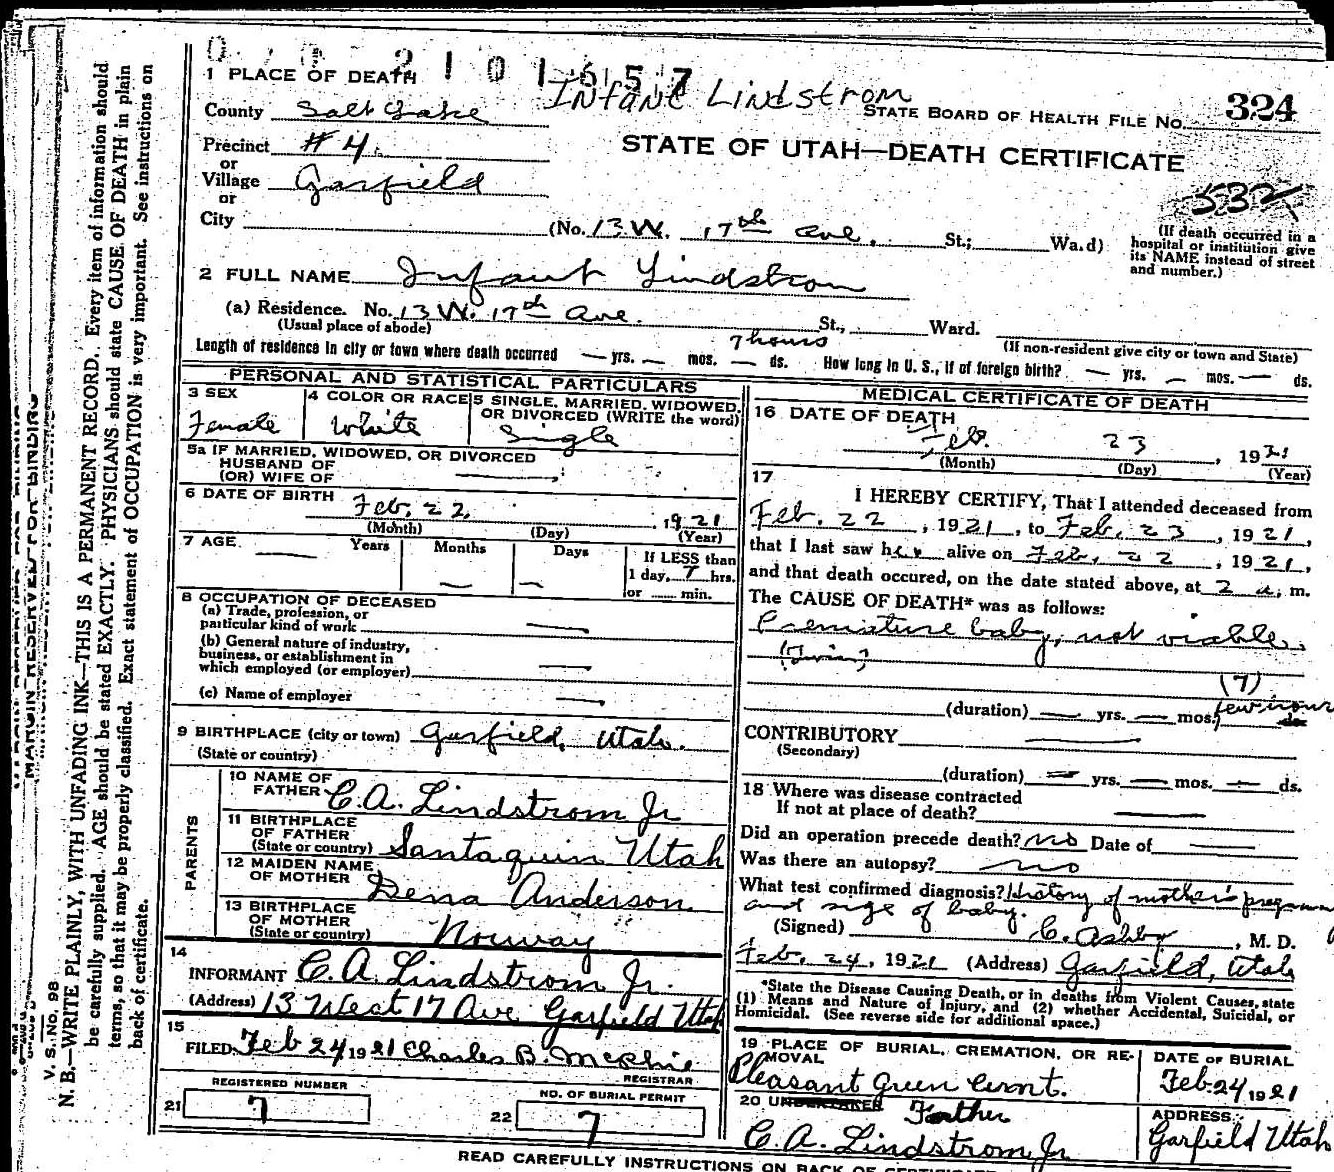 2101657
1 PLACE OF DEATH
Infant Lindstrom
County Salt Lake
STATE BOARD OF HEALTH FILE No. 324
Precinct #4.
STATE OF UTAH—DEATH CERTIFICATE
or
Village Garfield
532
or
City (No. 13 W. 17th ave. St.; Wa.d)
(If death occurred in a
hospital or institution give
its NAME instead of street
and number.)
2 FULL NAME Infant Lindstrom
(a) Residence. No. 13 W. 17th Ave. St., Ward.
(Usual place of abode)
(If non-resident give city or town and State)
7 hours
Length of residence in city or town where death occurred — yrs. — mos. — ds. How long in U. S., if of foreign birth? — yrs. — mos. — ds.
PERSONAL AND STATISTICAL PARTICULARS
3 SEX
Female
4 COLOR OR RACE
White
5 SINGLE, MARRIED, WIDOWED,
OR DIVORCED (WRITE the word)
Single
5a IF MARRIED, WIDOWED, OR DIVORCED
HUSBAND OF
(OR) WIFE OF
6 DATE OF BIRTH
Feb. 22, 1921
(Month) (Day) (Year)
7 AGE Years Months Days
If LESS than
1 day, 7 hrs.
or min.
8 OCCUPATION OF DECEASED
(a) Trade, profession, or
particular kind of work —
(b) General nature of industry,
business, or establishment in
which employed (or employer) —
(c) Name of employer —
9 BIRTHPLACE (city or town) Garfield, Utah.
(State or country)
PARENTS
10 NAME OF
FATHER C. A. Lindstrom Jr
11 BIRTHPLACE
OF FATHER
(State or country) Santaquin Utah
12 MAIDEN NAME
OF MOTHER Dena Anderson
13 BIRTHPLACE
OF MOTHER
(State or country) Norway
14
INFORMANT C. A. Lindstrom Jr.
(Address) 13 West 17 Ave Garfield Utah
15
FILED Feb 24 1921 Charles B. McPhie
REGISTRAR
REGISTERED NUMBER
21 7
NO. OF BURIAL PERMIT
22 7
MEDICAL CERTIFICATE OF DEATH
16 DATE OF DEATH
Feb. 23, 1921
(Month) (Day) (Year)
17
I HEREBY CERTIFY, That I attended deceased from
Feb. 22, 1921, to Feb. 23, 1921,
that I last saw her alive on Feb. 22, 1921,
and that death occured, on the date stated above, at 2 a. m.
The CAUSE OF DEATH* was as follows:
Premature baby, not viable.
(Twin)
(7)
few hours
(duration) — yrs. — mos. ds.
CONTRIBUTORY
(Secondary)
(duration) — yrs. — mos. — ds.
18 Where was disease contracted
If not at place of death? —
Did an operation precede death? no Date of —
Was there an autopsy? no
What test confirmed diagnosis? History of mother's
and size of baby.
(Signed) C. Ashby, M. D.
Feb. 24, 1921 (Address) Garfield, Utah
*State the Disease Causing Death, or in deaths from Violent Causes, state
(1) Means and Nature of Injury, and (2) whether Accidental, Suicidal, or
Homicidal. (See reverse side for additional space.)
19 PLACE OF BURIAL, CREMATION, OR RE-
MOVAL
Pleasant Green Cemt.
DATE OF BURIAL
Feb. 24 1921
20 UNDERTAKER Father
C. A. Lindstrom Jr
ADDRESS
Garfield Utah
READ CAREFULLY INSTRUCTIONS ON BACK OF
MARGIN RESERVED FOR BINDING
V. S. No. 98
N. B.—WRITE PLAINLY, WITH UNFADING INK—THIS IS A PERMANENT RECORD. Every item of information should
be carefully supplied. AGE should be stated EXACTLY. PHYSICIANS should state CAUSE OF DEATH in plain
terms, so that it may be properly classified. Exact statement of OCCUPATION is very important. See instructions on
back of certificate.